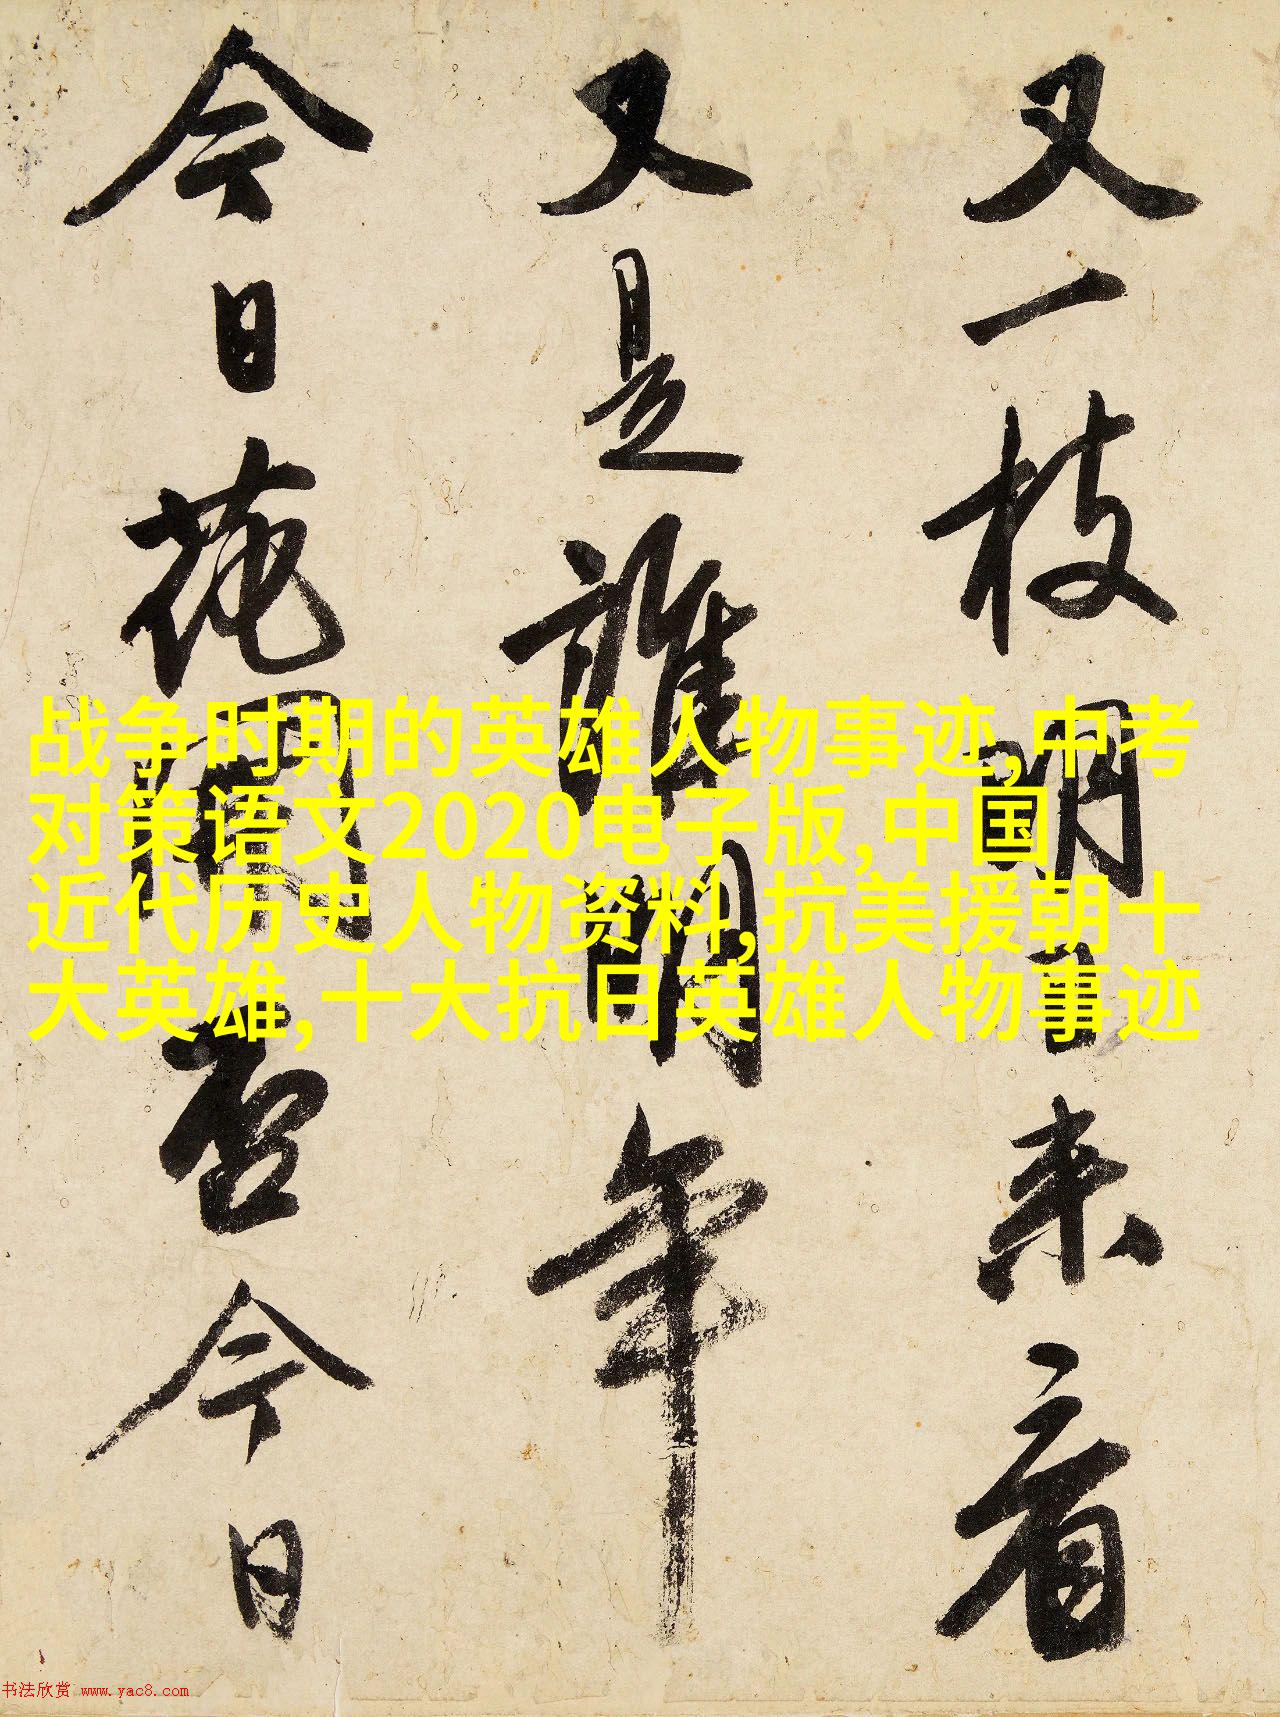 又一枝明日来看
又是誰明年
今日花開否今日
战争时期的英雄人物事迹,中考
对策语文2020电子版,中国
近代历史人物资料,抗美援朝十
大英雄,十大抗日英雄人物事迹
书法欣赏 www.yac8.com